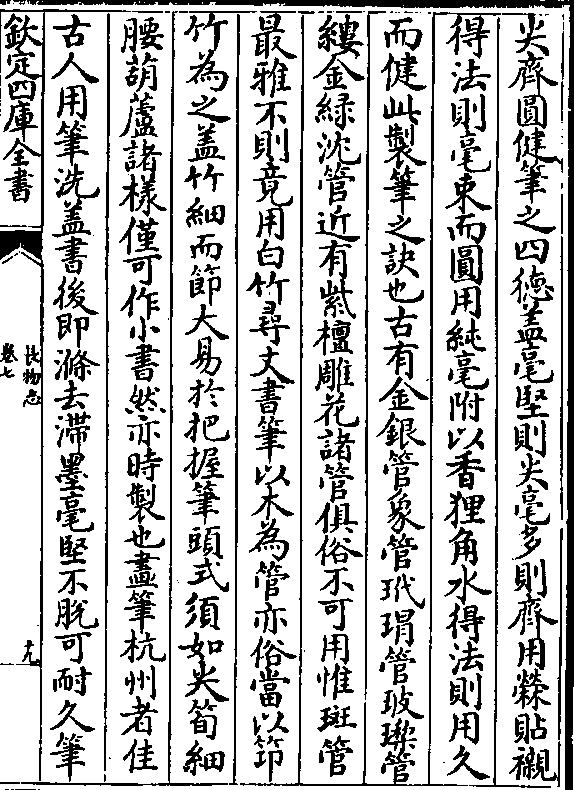 尖齊圓健筆之四德蓋毫堅則尖毫多則齊用𦃓貼襯
得法則毫束而圓用純毫附以香狸角水得法則用久
而健此製筆之訣也古有金銀管象管玳瑁管玻璨管
縷金緑沈管近有紫檀雕花諸管俱俗不可用惟斑管
最雅不則竟用白竹尋丈書筆以木為管亦俗當以筇
竹為之蓋竹細而節大易於把握筆頭式須如尖筍細
腰葫蘆諸樣僅可作小書然亦時製也畫筆杭州者佳
古人用筆洗蓋書後即滌去滯墨毫堅不脱可耐久筆
欽定四庫全書
長物志
卷七
十九